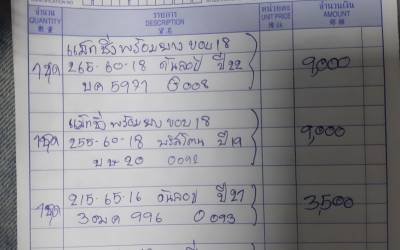 จำนวน รายการ หน่วยละ จำนวนเงิน
QUANTITY DESCRIPTION UNIT PRICE AMOUNT
แม็กซ์พร้อมยาง ขอบ 18
1 ชุด 265-60-18 ดันลอป ปี 22 9,000
บค 5971 6008
แม็กซ์พร้อมยาง ขอบ 18
1 ชุด 255-60-18 ปี 19 9,000
บษ 20 0092
215-65-16 ดันลอป ปี 21
1 ชุด 3 996 0093 3,500